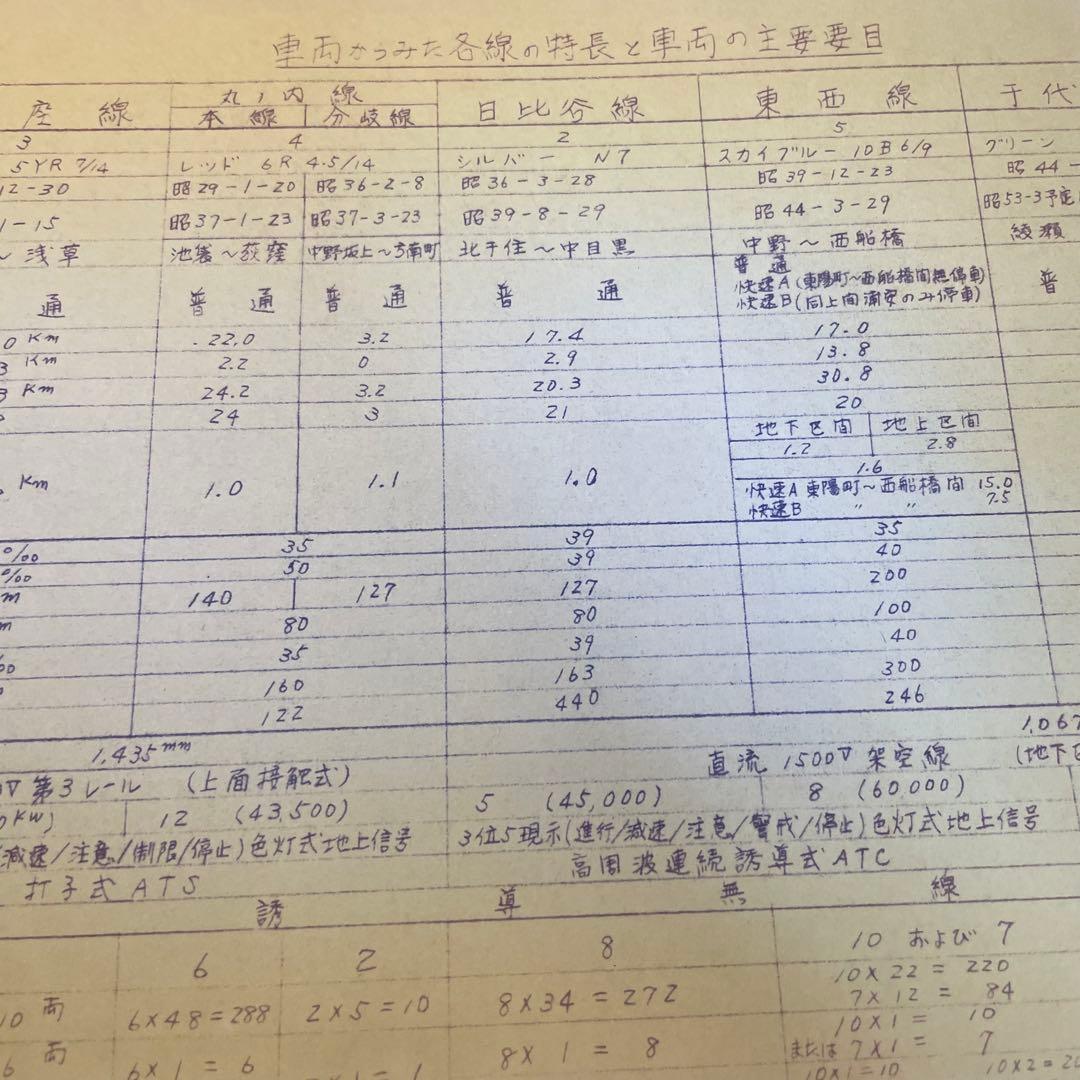 車両からみた各線の特長と車両の主要要目
座線 丸ノ内線 日比谷線 東西線 千代
本線 分岐線
3 4 2 5
5YR 7/14 レッド 6R 4.5/14 シルバー N7 スカイブルー 10B 6/9 グリーン
12-30 昭29-1-20 昭36-2-8 昭36-3-28 昭39-12-23 昭44-
1-15 昭37-1-23 昭37-3-23 昭39-8-29 昭44-3-29 昭53-3予定
～浅草 池袋～荻窪 中野坂上～方南町 北千住～中目黒 中野～西船橋 綾瀬
通 普通 普通 普通 普通 普
快速A(東陽町～西船橋間無停車)
快速B(同上間浦安のみ停車)
0 Km 22.0 3.2 17.4 17.0
3 Km 2.2 0 2.9 13.8
3 Km 24.2 3.2 20.3 30.8
24 3 21 20
地下区間 地上区間
1.2 2.8
Km 1.0 1.1 1.0 1.6
快速A 東陽町～西船橋間 15.0
快速B 〃 〃 7.5
‰ 35 39 35
‰ 50 39 40
m 140 127 127 200
m 80 80 100
‰ 35 39 40
160 163 300
122 440 246
1,435mm 1,067
V 第3レール (上面接触式) 直流1500V架空線 (地下
KW) 12 (43,500) 5 (45,000) 8 (60,000)
減速/注意/制限/停止)色灯式地上信号 3位5現示(進行/減速/注意/警戒/停止)色灯式地上信号
打子式ATS 高周波連続誘導式ATC
誘導無線
6 2 8 10 および 7
10両 6×48=288 2×5=10 8×34=272 10×22=220
7×12= 84
10×1= 10
6両 6×1=6 ×1=1 8×1=8 または7×1= 7
10×1=10 10×2=20